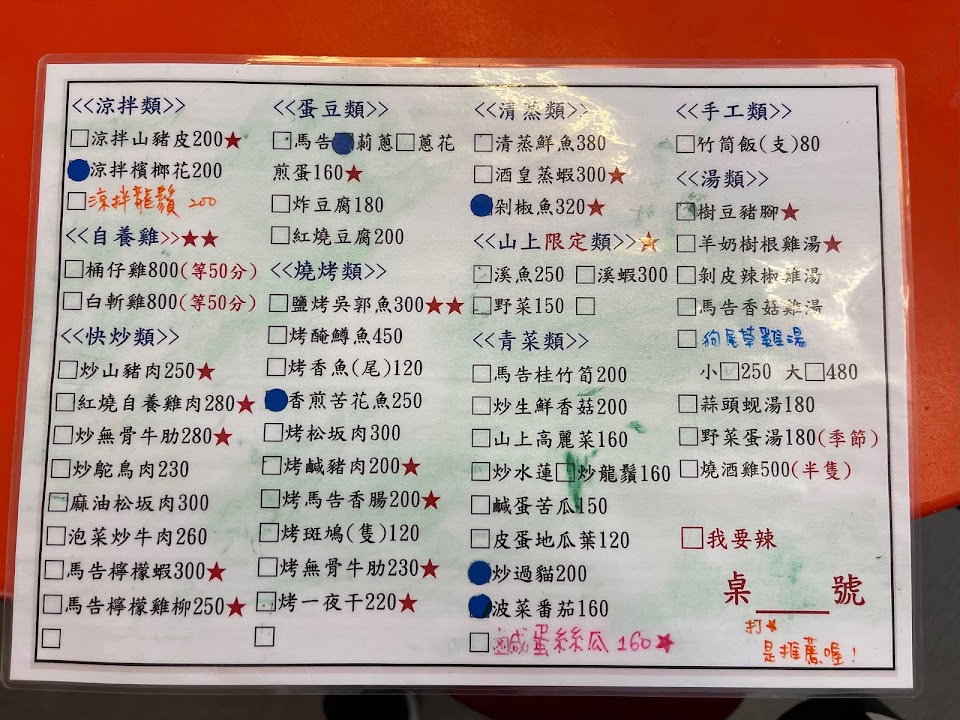 <<涼拌類>>
□涼拌山豬皮200★
涼拌檳榔花200
□涼拌龍鬚 200
<<自養雞>>★★
□桶仔雞800(等50分)
□白斬雞800(等50分)
<<快炒類>>
□炒山豬肉250★
□紅燒自養雞肉280★
□炒無骨牛肋280★
□炒鴕鳥肉230
□麻油松坂肉300
□泡菜炒牛肉260
□馬告檸檬蝦300★
□馬告檸檬雞柳250★
□
<<蛋豆類>>
□馬告 莿蔥□蔥花
煎蛋160★
□炸豆腐180
□紅燒豆腐200
<<燒烤類>>
□鹽烤吳郭魚300★★
□烤醃鱒魚450
□烤香魚(尾)120
香煎苦花魚250
□烤松坂肉300
□烤鹹豬肉200★
□烤馬告香腸200★
□烤斑鳩(隻)120
□烤無骨牛肋230★
□烤一夜干220★
□
<<清蒸類>>
□清蒸鮮魚380
□酒皇蒸蝦300★
剁椒魚320★
<<山上限定類>>★
□溪魚250 □溪蝦300
□野菜150 □
<<青菜類>>
□馬告桂竹筍200
□炒生鮮香菇200
□山上高麗菜160
□炒水蓮□炒龍鬚160
□鹹蛋苦瓜150
□皮蛋地瓜葉120
炒過貓200
波菜番茄160
□鹹蛋絲瓜 160★
<<手工類>>
□竹筒飯(支)80
<<湯類>>
□樹豆豬腳★
□羊奶樹根雞湯★
□剝皮辣椒雞湯
□馬告香菇雞湯
□狗尾草雞湯
小□250 大□480
□蒜頭蜆湯180
□野菜蛋湯180(季節)
□燒酒雞500(半隻)
□我要辣
桌____號
打★
是推薦喔!